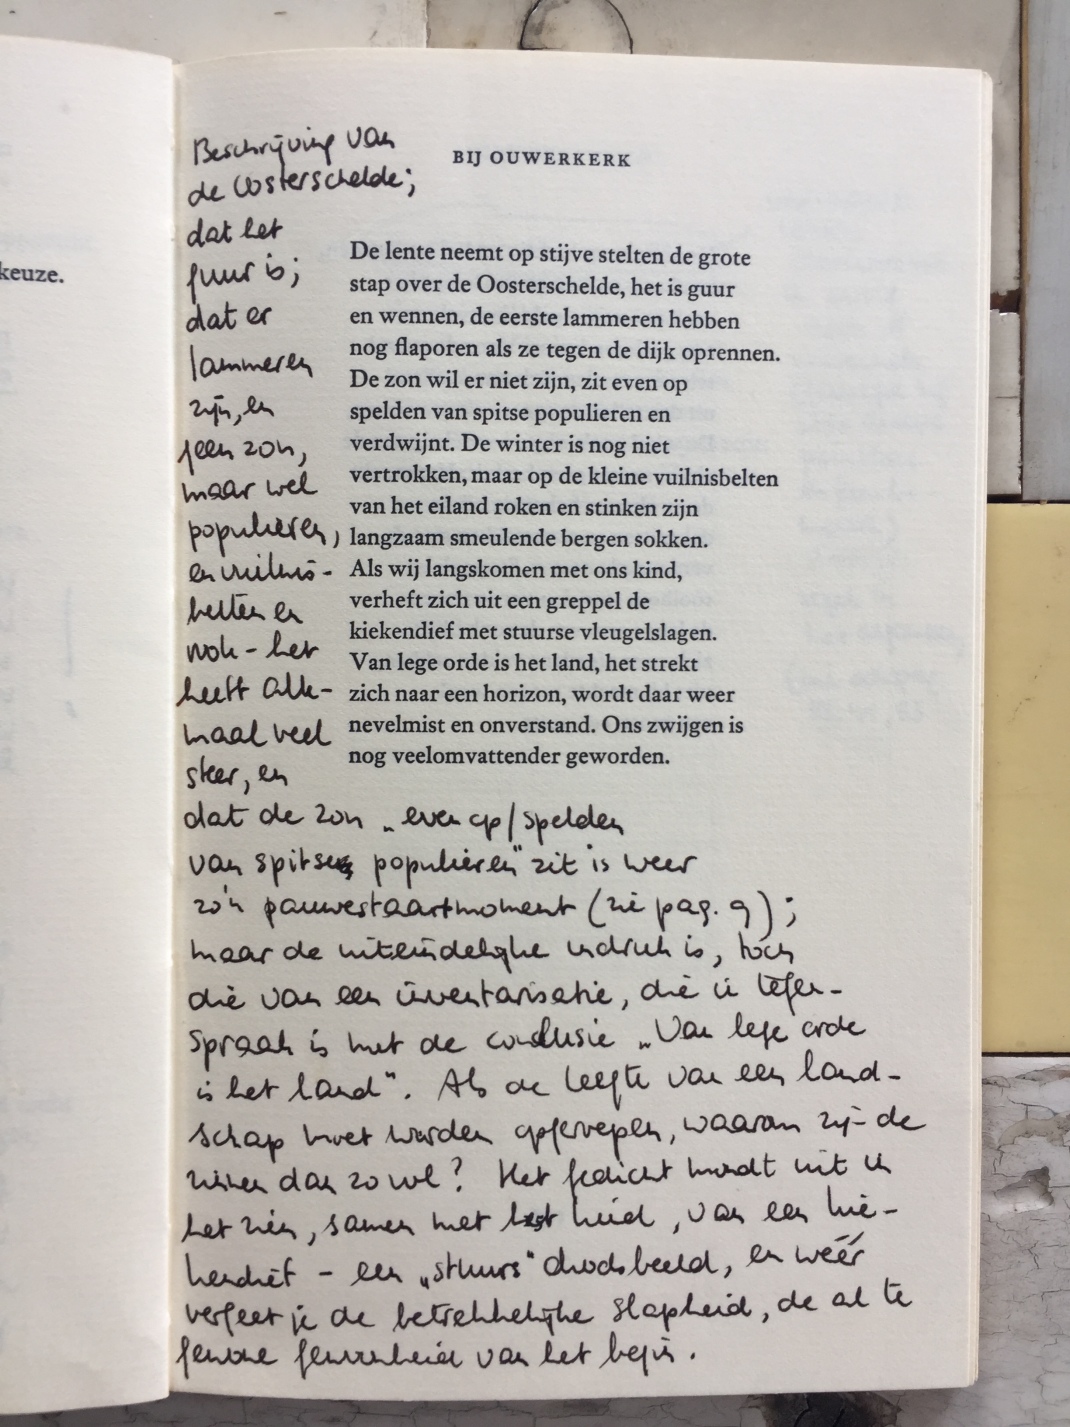 keuze.
BIJ OUWERKERK
De lente neemt op stijve stelten de grote
stap over de Oosterschelde, het is guur
en wennen, de eerste lammeren hebben
nog flaporen als ze tegen de dijk oprennen.
De zon wil er niet zijn, zit even op
spelden van spitse populieren en
verdwijnt. De winter is nog niet
vertrokken, maar op de kleine vuilnisbelten
van het eiland roken en stinken zijn
langzaam smeulende bergen sokken.
Als wij langskomen met ons kind,
verheft zich uit een greppel de
kiekendief met stuurse vleugelslagen.
Van lege orde is het land, het strekt
zich naar een horizon, wordt daar weer
nevelmist en onverstand. Ons zwijgen is
nog veelomvattender geworden.
Beschrijving van
de Oosterschelde;
dat het
guur is;
dat er
lammeren
zijn, en
geen zon,
maar wel
populieren,
en vuilnis-
belten en
rook - het
heeft alle-
maal veel
sfeer, en
dat de zon „even op/spelden
van spitse populieren" zit is weer
zo'n pauwestaartmoment (zie pag. 9);
maar de uiteindelijke indruk is, tóch
die van een inventarisatie, die in tegen-
spraak is met de conclusie „Van lege orde
is het land". Als de leegte van een land-
schap moet worden opgeroepen, waarom zijn de
zinnen dan zo vol? Het gedicht mondt uit in
het zien, samen met het kind, van een kie-
kendief - een „stuurs" doodsbeeld, en wéér
vergeet je de betrekkelijke slapheid, de al te
gewone gewoonheid van het begin.